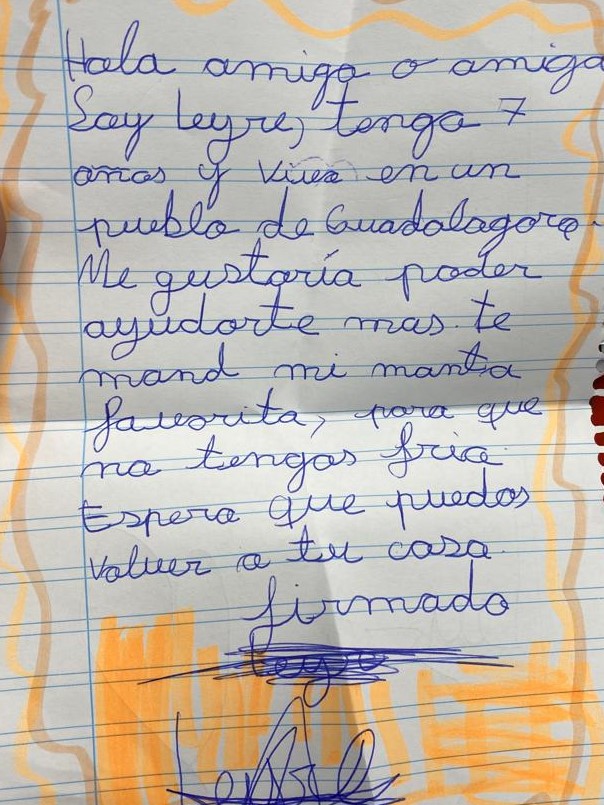 Hola amigo o amiga
Soy Leyre, tengo 7
años y vivo en un
pueblo de Guadalagora.
Me gustaría poder
ayudarte mas. te
mand mi manta
favorita, para que
no tengas frio.
Espero que puedas
volver a tu casa.
firmado
Leyre